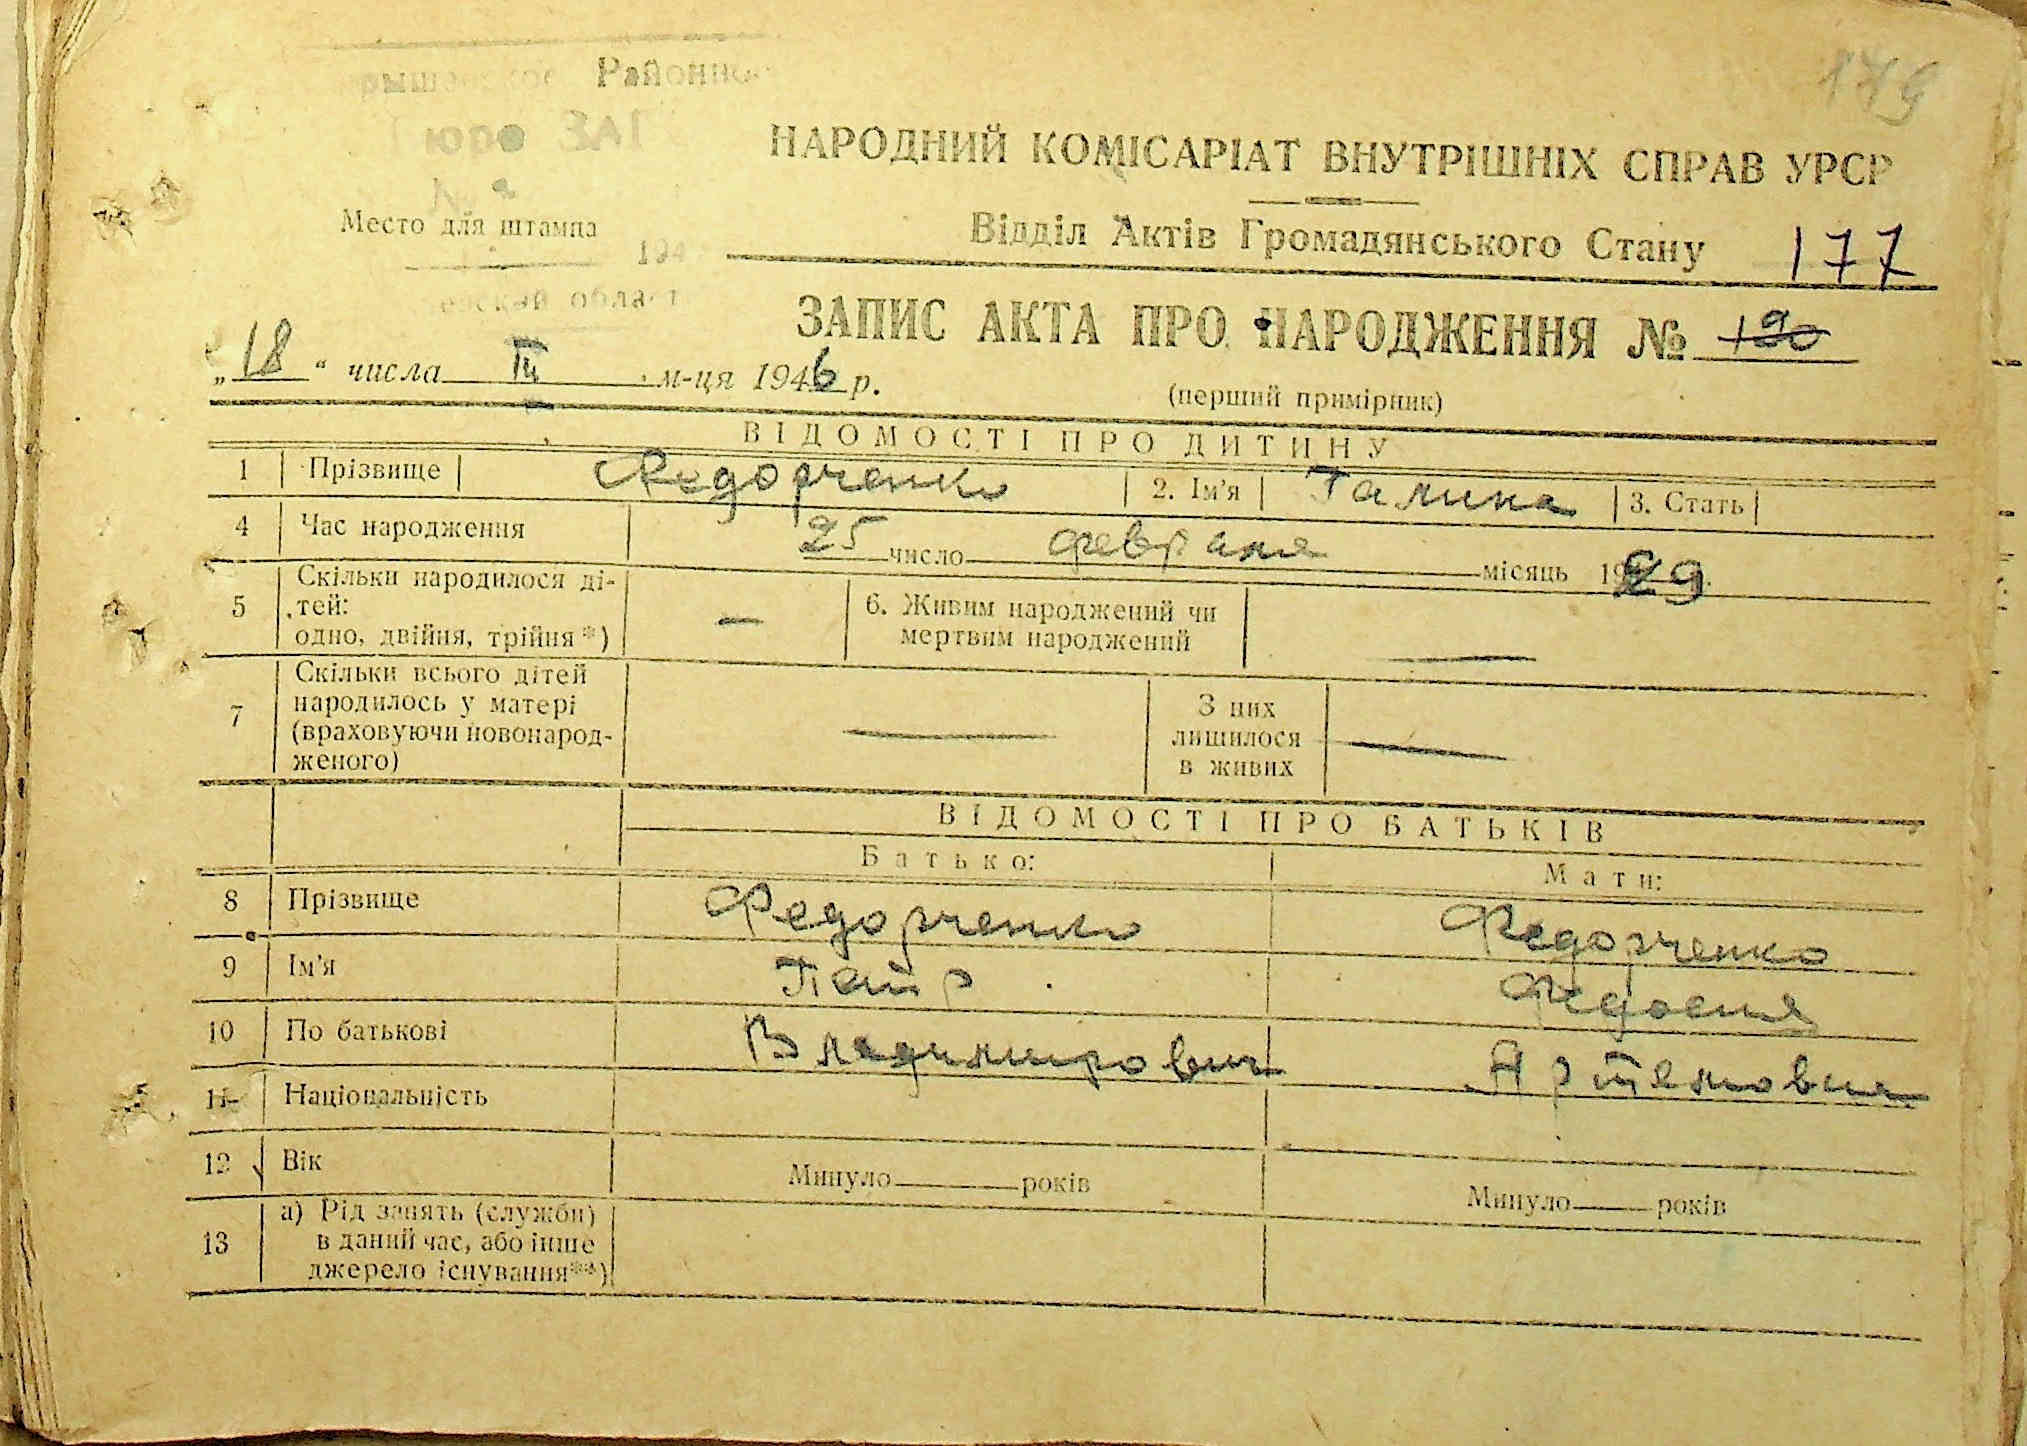 Районное
Бюро ЗАГС
179
НАРОДНИЙ КОМІСАРІАТ ВНУТРІШНІХ СПРАВ УРСР
Место для штампа
Відділ Актів Громадянського Стану 177
194
област
ЗАПИС АКТА ПРО НАРОДЖЕННЯ № 190
„18“ числа III м-ця 1946 р.
(перший примірник)
ВІДОМОСТІ ПРО ДИТИНУ
1 Прізвище Федорченко 2. Ім'я Галина 3. Стать
4 Час народження 25 число февраля місяць 1929
5 Скільки народилося ді-
тей:
одно, двійня, трійня*) —
6. Живим народжений чи
мертвим народжений —
7 Скільки всього дітей
народилось у матері
(враховуючи новонарод-
женого) —
З них
лишилося
в живих —
ВІДОМОСТІ ПРО БАТЬКІВ
Батько: Мати:
8 Прізвище Федорченко Федорченко
9 Ім'я Петр Федосия
10 По батькові Владимирович Артемовна
11 Національність
12 Вік Минуло років Минуло років
13 а) Рід занять (служби)
в даний час, або інше
джерело існування**)